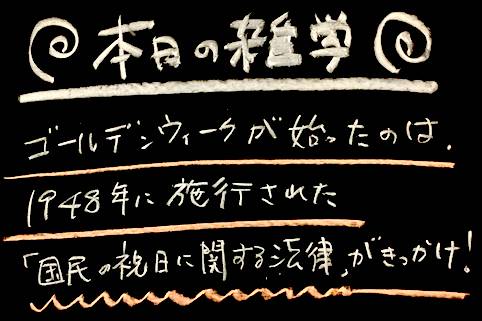 本日の雑学
ゴールデンウィークが始ったのは、
1948年に施行された
「国民の祝日に関する法律」がきっかけ!